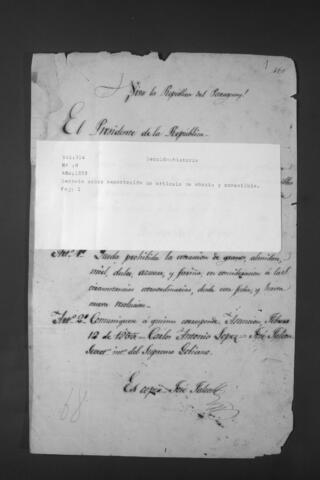 ¡Viva la República del Paraguay!
El Presidente de la República
Vol:314 Sección:Historia
Nº :8
Año:1855
Decreto sobre exportación de artículo de abasto y comestible.
Fój: 1
Art.º 1º Queda prohibida la extracción de granos, almidón,
miel, dulce, azucar, y fariña, en consideracion á las
circunstancias extraordinarias, desde esta fecha, y hasta
nueva resolucion.
Art.º 2º Comuníquese á quienes corresponda. Asuncion Febrero
12 de 1855 - Carlos Antonio Lopez - José Falcon
Secret.º int.º del Supremo Gobierno.
Es copia José Falcon